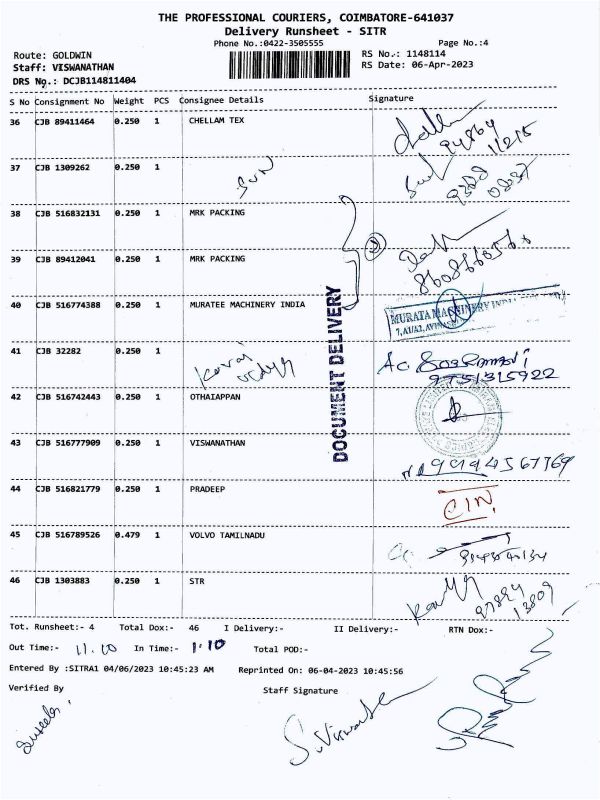 THE PROFESSIONAL COURIERS, COIMBATORE-641037
Delivery Runsheet - SITR
Phone No.:0422-3505555 Page No.:4
Route: GOLDWIN RS No.: 1148114
Staff: VISWANATHAN RS Date: 06-Apr-2023
DRS No.: DCJB114811404
S No Consignment No Weight PCS Consignee Details Signature
36 CJB 89411464 0.250 1 CHELLAM TEX
37 CJB 1309262 0.250 1
SUN
38 CJB 516832131 0.250 1 MRK PACKING
39 CJB 89412041 0.250 1 MRK PACKING
40 CJB 516774388 0.250 1 MURATEE MACHINERY INDIA
MURATA MACHINERY INDIA
DOCUMENT DELIVERY
41 CJB 32282 0.250 1
9751315922
42 CJB 516742443 0.250 1 OTHAIAPPAN
43 CJB 516777909 0.250 1 VISWANATHAN
9994567769
44 CJB 516821779 0.250 1 PRADEEP
45 CJB 516789526 0.479 1 VOLVO TAMILNADU
46 CJB 1303883 0.250 1 STR
Tot. Runsheet:- 4 Total Dox:- 46 I Delivery:- II Delivery:- RTN Dox:-
Out Time:- 11.00 In Time:- 1.10 Total POD:-
Entered By :SITRA1 04/06/2023 10:45:23 AM Reprinted On: 06-04-2023 10:45:56
Verified By Staff Signature
S. Viswanathan